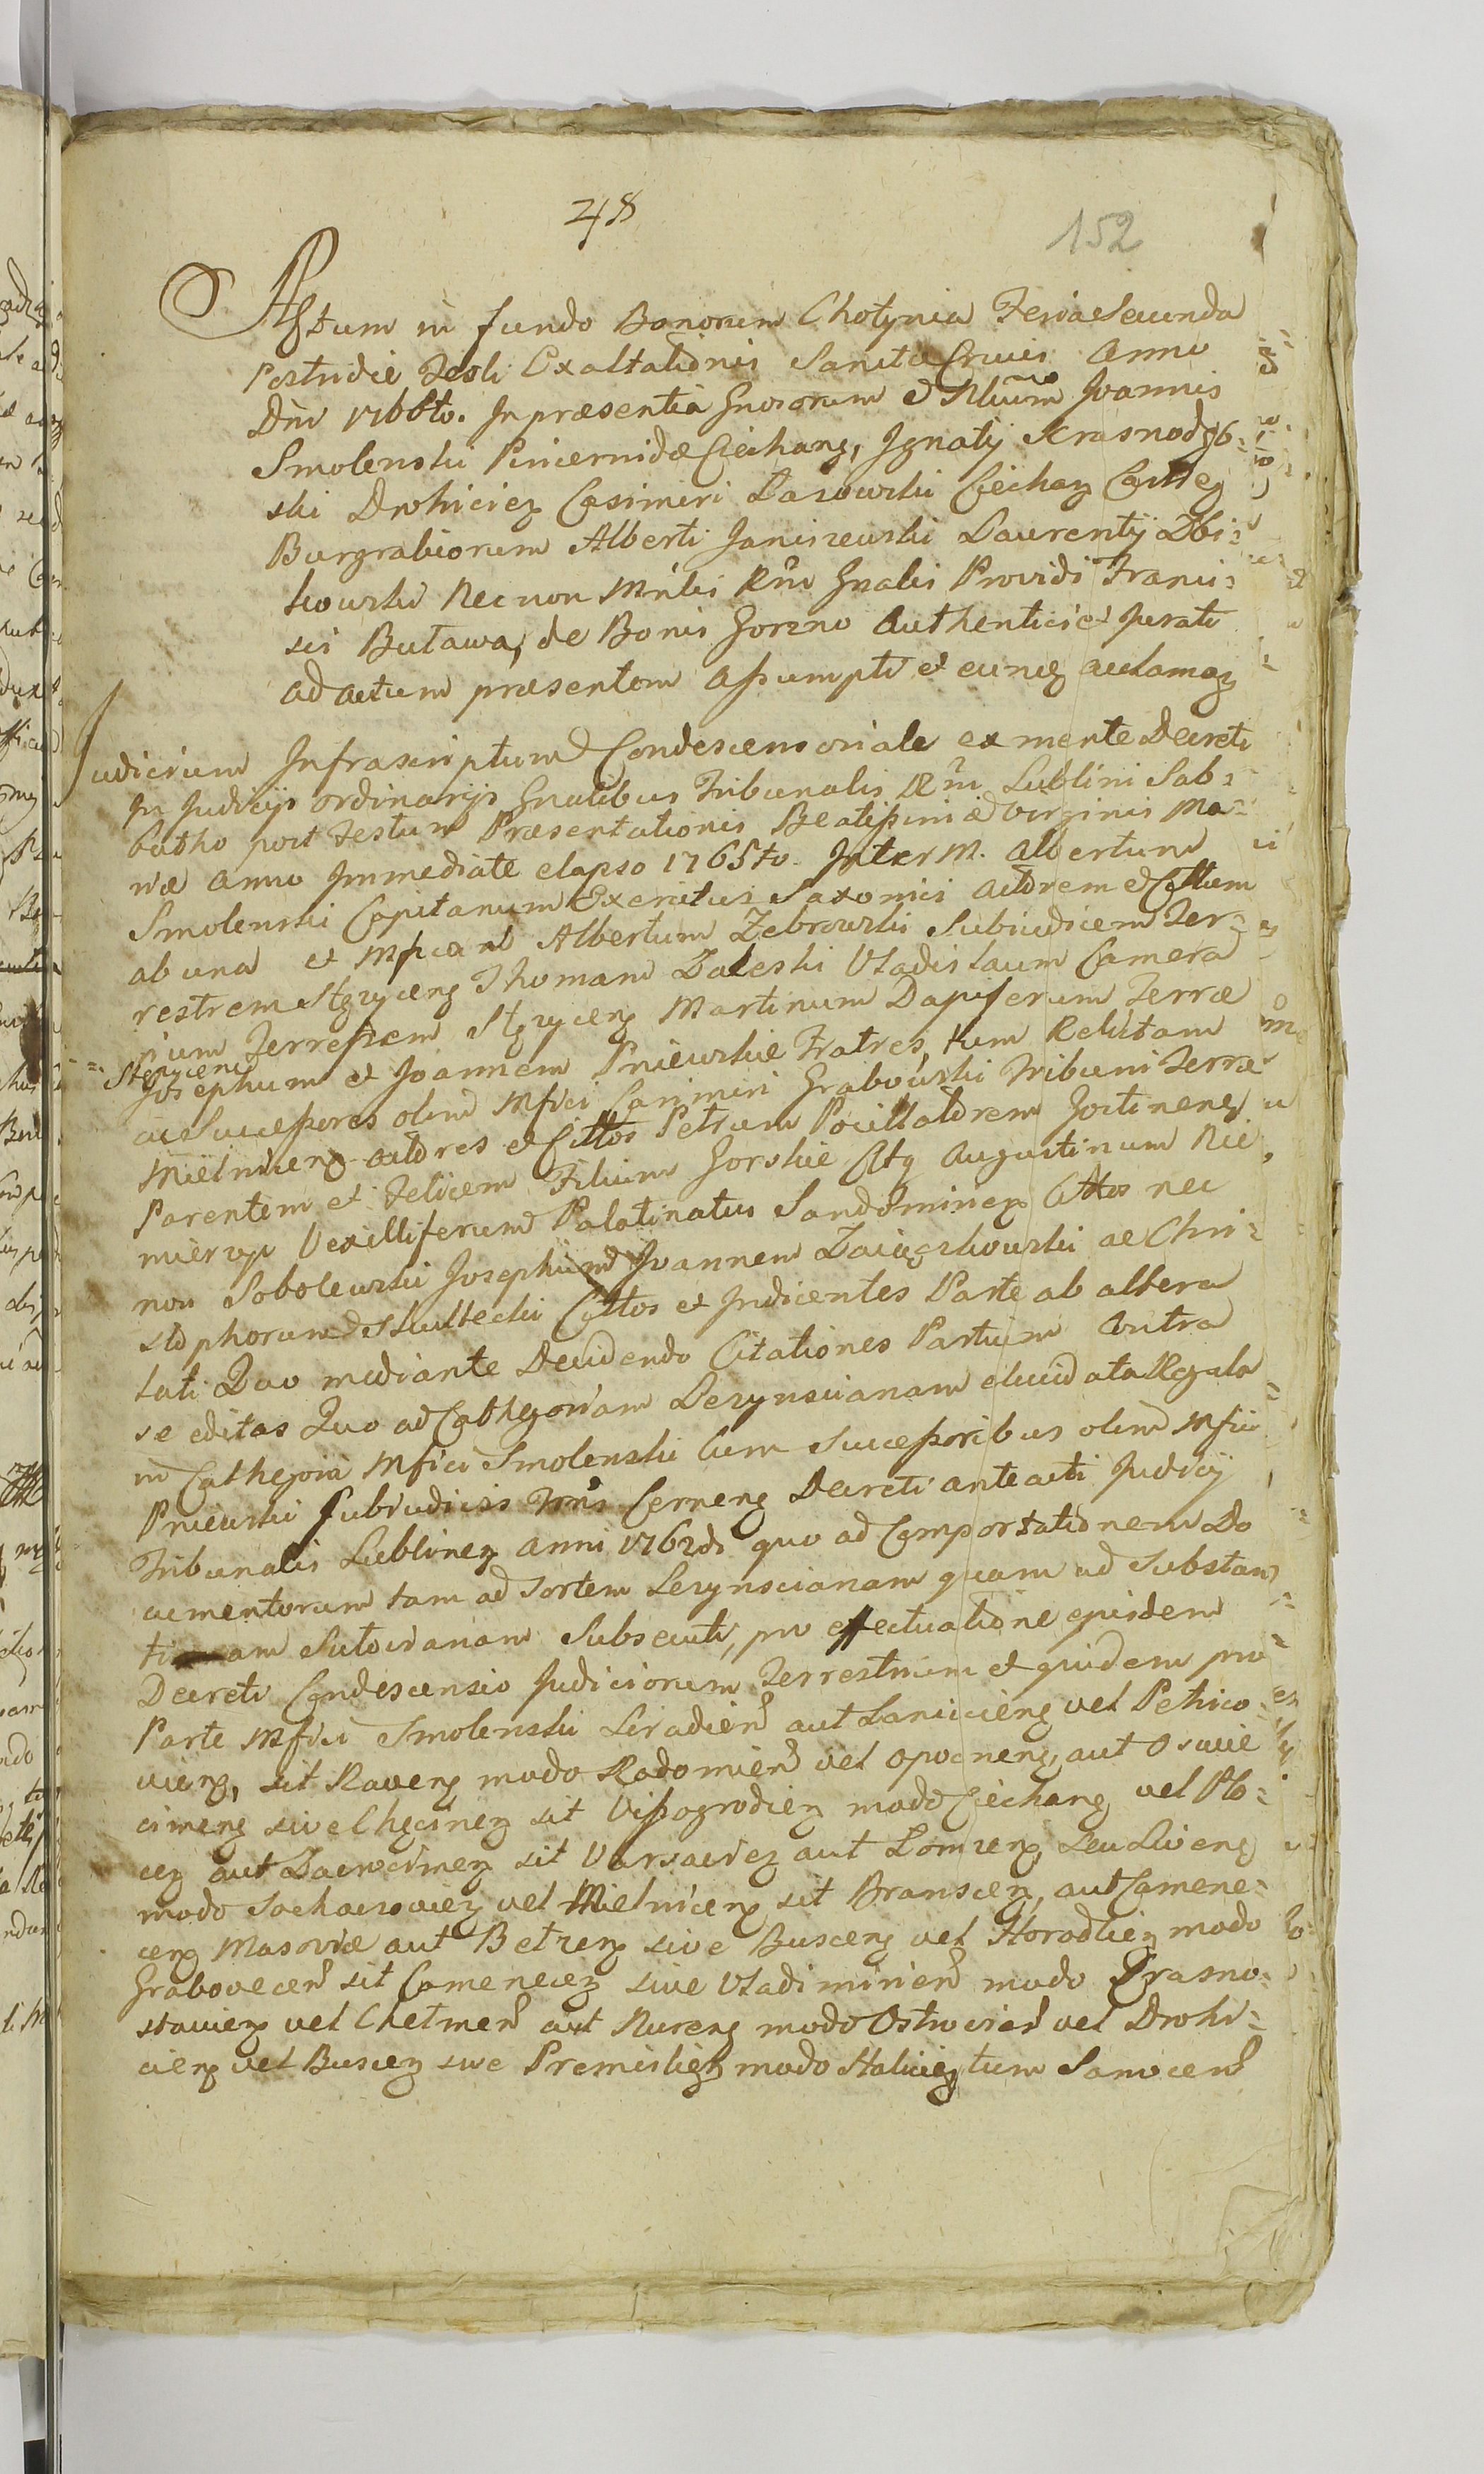 48
152
Actum in fundo Bonorum Chotynia Feria Secunda
Postridie Festi Exaltationis Sanctae Crucis Anno
Dni 1766to. In praesentia Gnosorum et Nlium Joannis
Smolenski Pincernidae Ciechang, Ignatij Krasnodęb=
ski Drohiciez Casimiri Lasowski Ciechaz Castrez
Burgrabiorum Alberti Janiszewski Laurentij Zbi=
kowski Nec non Mnlis Rni Gnalis Providi Franci=
sci Butawa, de Bonis Gorzno Authentici et Jurati
ad actum praesentem assumpti et eunq aclamaz
Judicium Infrascriptum Condescensoriale ex mente Decreti
In Judicijs ordinarijs Gnalibus Tribunalis Rni Lublini Sab=
batho post Festum Praesentationis Beatissimae Virginis Ma=
riae Anno Immediate elapso 1765to. Inter M. Albertum
Smolenski Capitanum Exercitus Saxonici Actorem et Cittum
ab una et Mficos Albertum Zebrowski Subiudicem Ter=
restrem Stęzyceng Thomam Zaleski Vladislaum Camera
rium Terrestrem Stęzyceng Martinum Dapiferum Terrae
= Stęzyceng
Josephum et Joannem Pniewskie Fratres, tum Relictam
ac Successores olim Mfici Casimiri Grabowski Tribuni Terrae
Mielniceng actores et Cittos Petrum Pocillatorem Gostineng
Parentem et Felicem Filium Gorskie Atq Augustinum Nie
mierzyc Vexilliferum Palatinatus Sandomiriez Cittos nec
non Sobolewski Josephum Joannem Zaiączkowski ac Chri=
stophorum Skulteckі Cittos et Indicentes Parte ab altera
lati Quo mediante Decidendo Citationes Partium Contra
se editas Quo ad Cathegoriam Lezynscianam elucidata Regula
in Cathegoria Mfici Smolenski cum Successoribus olim Mfici
Pniewski Subiudicis Trris Cerneng Decreti anteacti Judicij
Tribunalis Lublinez anni 1762di quo ad Comportationem Do
cumentorum tam ad Sortem Lezynscianam quam ad Substan
tiam Subsecuti, pro effectuatione eiusdem
Decreti Condescensio Judiciorum Terrestrium et quidem pro
Parte Mfici Smolenski Siradien aut Lanicieng vel Petrico
vieng, sit Raveng modo Radomien vel Opocneng, aut Oswie
cimeng sive Chęcinez sit Vissogrodiez modo Ciechang vel Plo=
cez aut Zacrocimez sit Varsaviez aut Lomzez, seu Liveng
modo Sochacroviez vel Mielniceng sit Bransceng, aut Camene=
ceng Masoviae aut Betzeng sive Busceng vel Horodliez modo
Grabovecen sit Camenecez sive Vladimirien modo Crasno=
staviez vel Chelmen aut Nureng modo Ostrovien vel Drohi=
cieng vel Busciez sive Premisliez modo Haliciez tum Sanocen